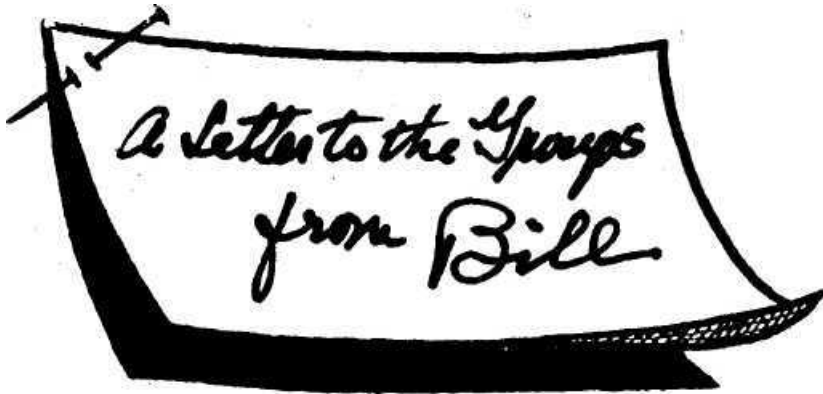 A Letter to the Groups
from Bill